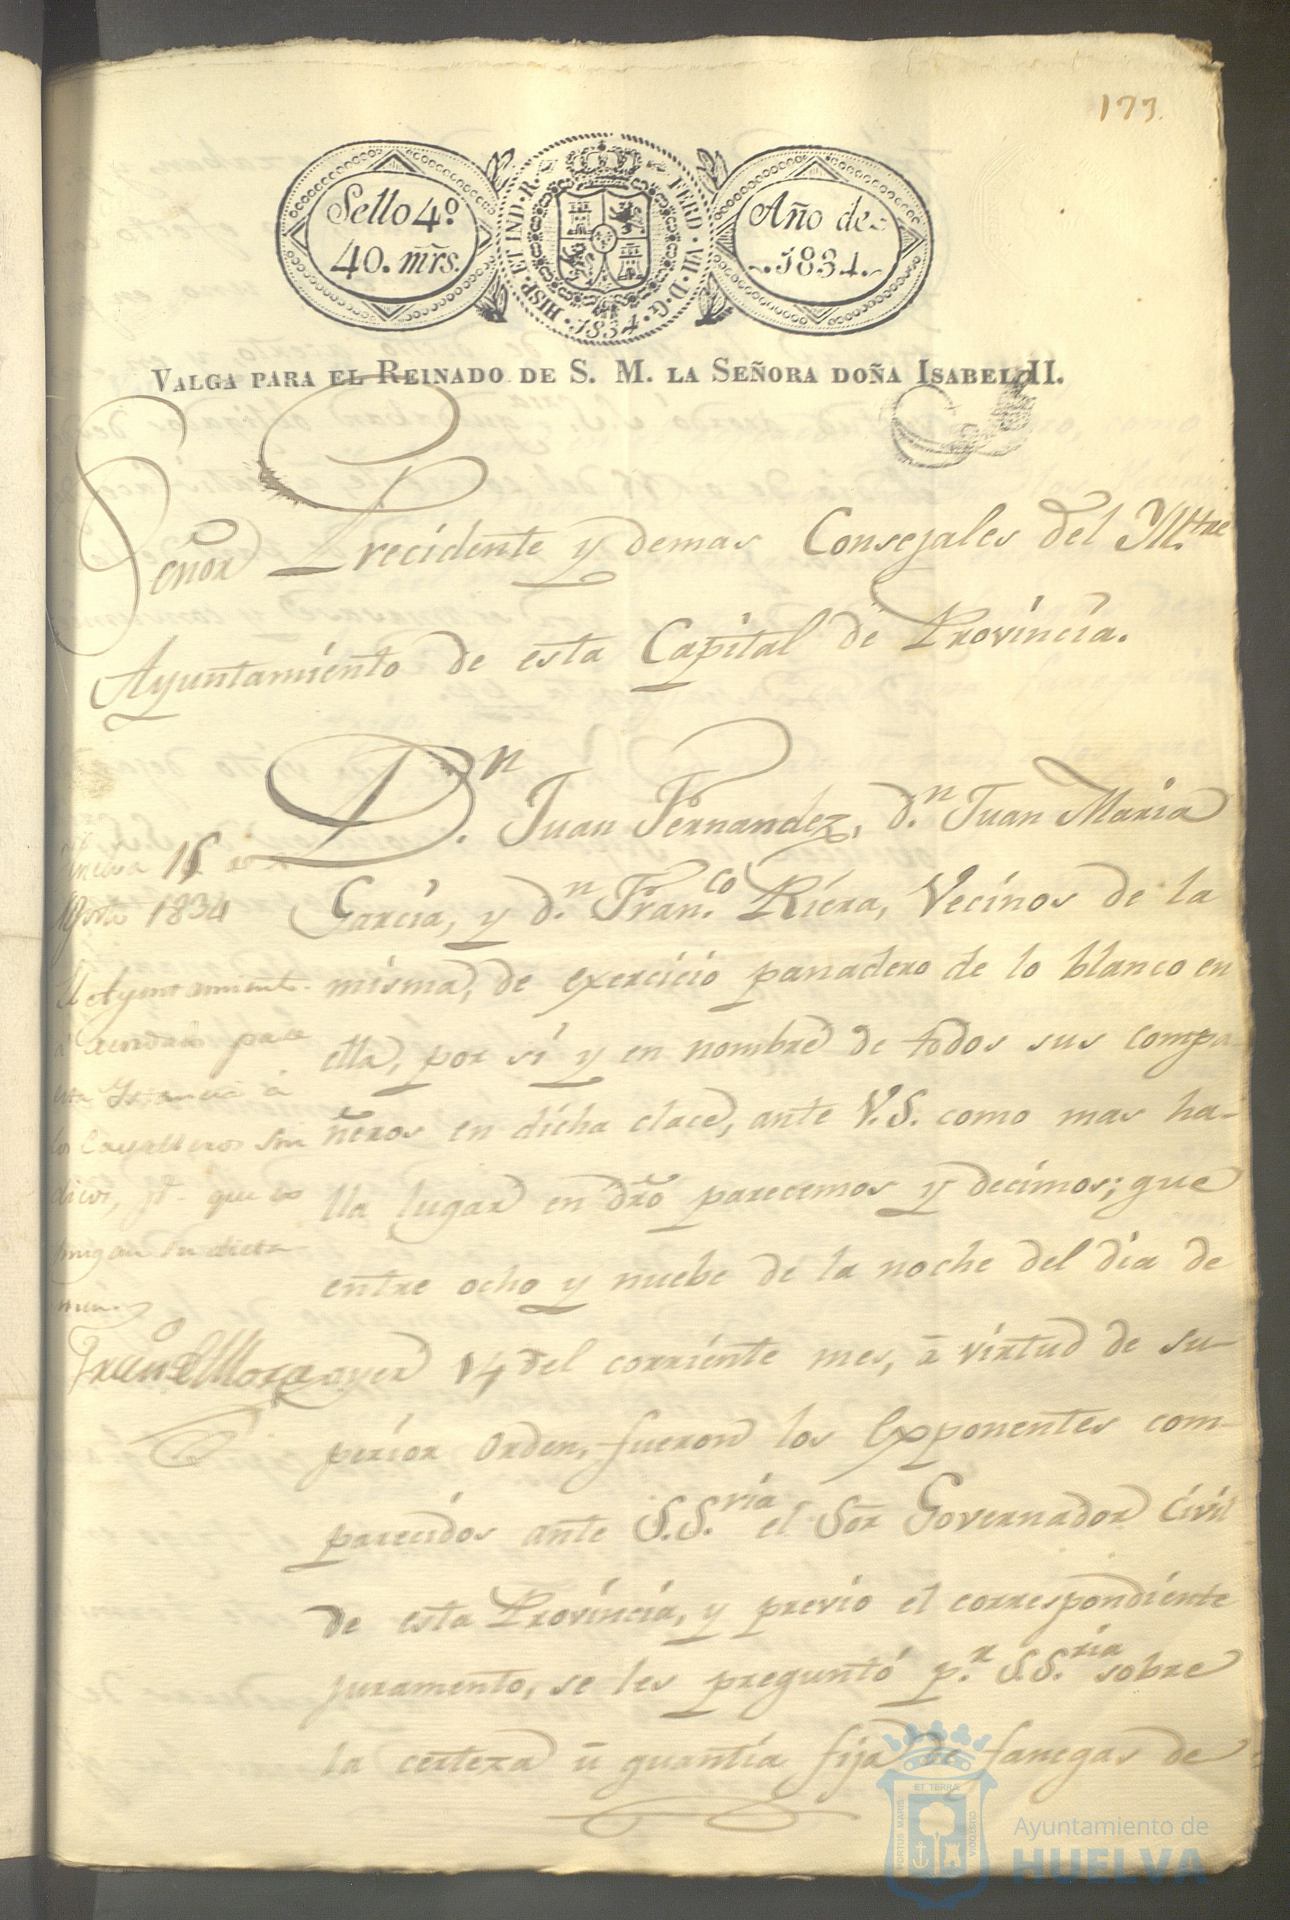 173.
Sello 4º
40. mrs.
HISP. ET IND. R. FERD. VII. D. G.
1834
Año de
1834.
VALGA PARA EL REINADO DE S. M. LA SEÑORA DOÑA ISABEL II.
Señor Precidente y demas Consejales del Yll.tre
Ayuntamiento de esta Capital de Provincia.
D.n Juan Fernandez, d.n Juan Maria
Garcia, y d.n Fran.co Riera, Vecinos de la
misma, de exercicio panadero de lo blanco en
ella, por sí y en nombre de todos sus compa
ñeros en dicha clace, ante V.S. como mas ha-
lla lugar en dro parecemos y decimos; que
entre ocho y nuebe de la noche del dia de
ayer 14 del corriente mes, ã virtud de su-
perior orden, fueron los Exponentes com-
parecidos ante S.S.ria el Sor Governador Civil
de esta Provincia, y previo el correspondiente
juramento, se les preguntó p.r S.S.ria sobre
la certeza ũ quantía fija de fanegas de
Huelva 15 de
Agosto 1834
El Ayuntamient.
acuerda pase
esta Ystancia á
los Cavalleros Sin
dicos, pª que es
pongan su dicta
men.
PORTUS MARIS ET TERRÆ CUSTODIA
Ayuntamiento de
HUELVA